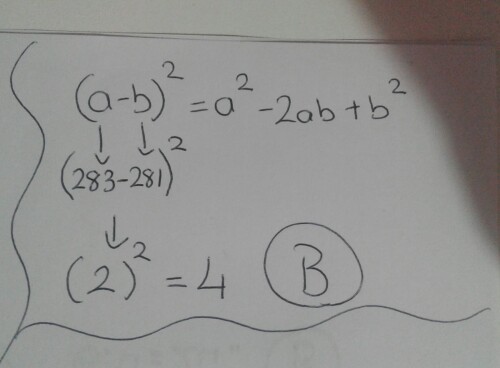 (a-b)² = a² - 2ab + b²
↓ ↓
(283-281)²
↓
(2)² = 4 B